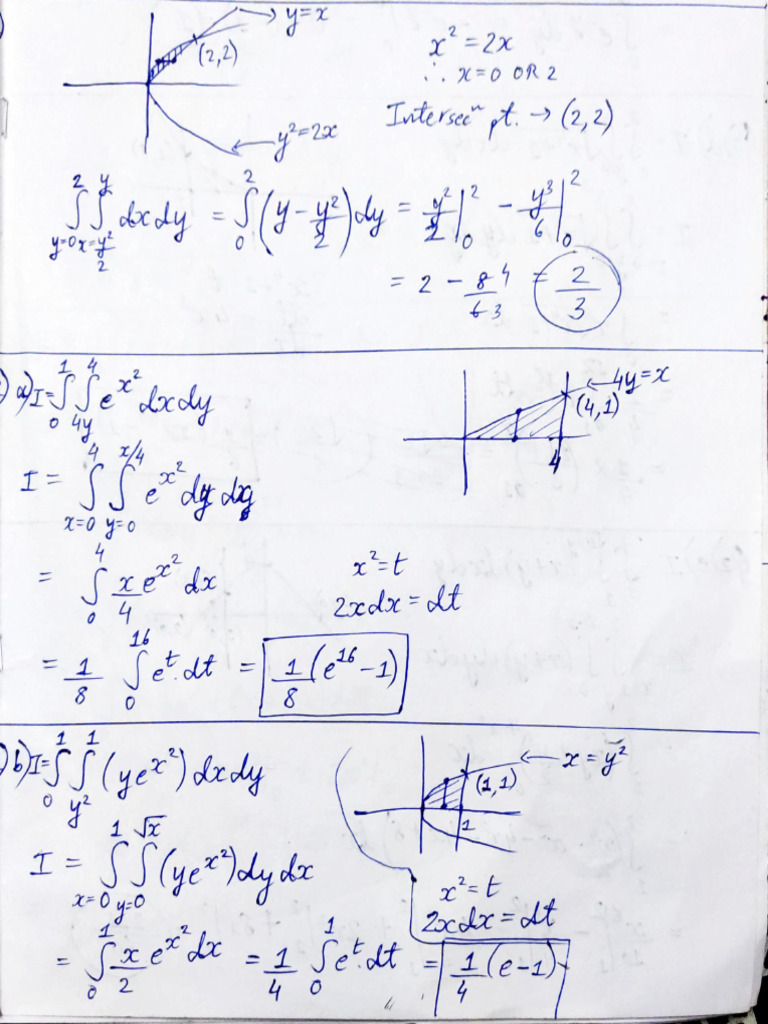 y=x
(2,2)
y²=2x
x²=2x
∴ x=0 OR 2
Intersecⁿ pt. → (2,2)
∫_{y=0}^{2} ∫_{x=y²/2}^{y} dxdy = ∫_{0}^{2} (y - y²/2) dy = y²/2 |₀² - y³/6 |₀²
= 2 - 8/6 4/3 = 2/3
a) I = ∫_{0}^{1} ∫_{4y}^{4} e^{x²} dxdy
4y=x
(4,1)
4
I = ∫_{x=0}^{4} ∫_{y=0}^{x/4} e^{x²} dy dx
= ∫_{0}^{4} x/4 e^{x²} dx
x²=t
2xdx = dt
= 1/8 ∫_{0}^{16} e^t.dt = 1/8 (e^{16} -1)
b) I = ∫_{0}^{1} ∫_{y²}^{1} (ye^{x²}) dxdy
x=y²
(1,1)
1
I = ∫_{x=0}^{1} ∫_{y=0}^{√x} (ye^{x²}) dydx
x²=t
2xdx = dt
= ∫_{0}^{1} x/2 e^{x²} dx = 1/4 ∫_{0}^{1} e^t.dt = 1/4 (e-1)